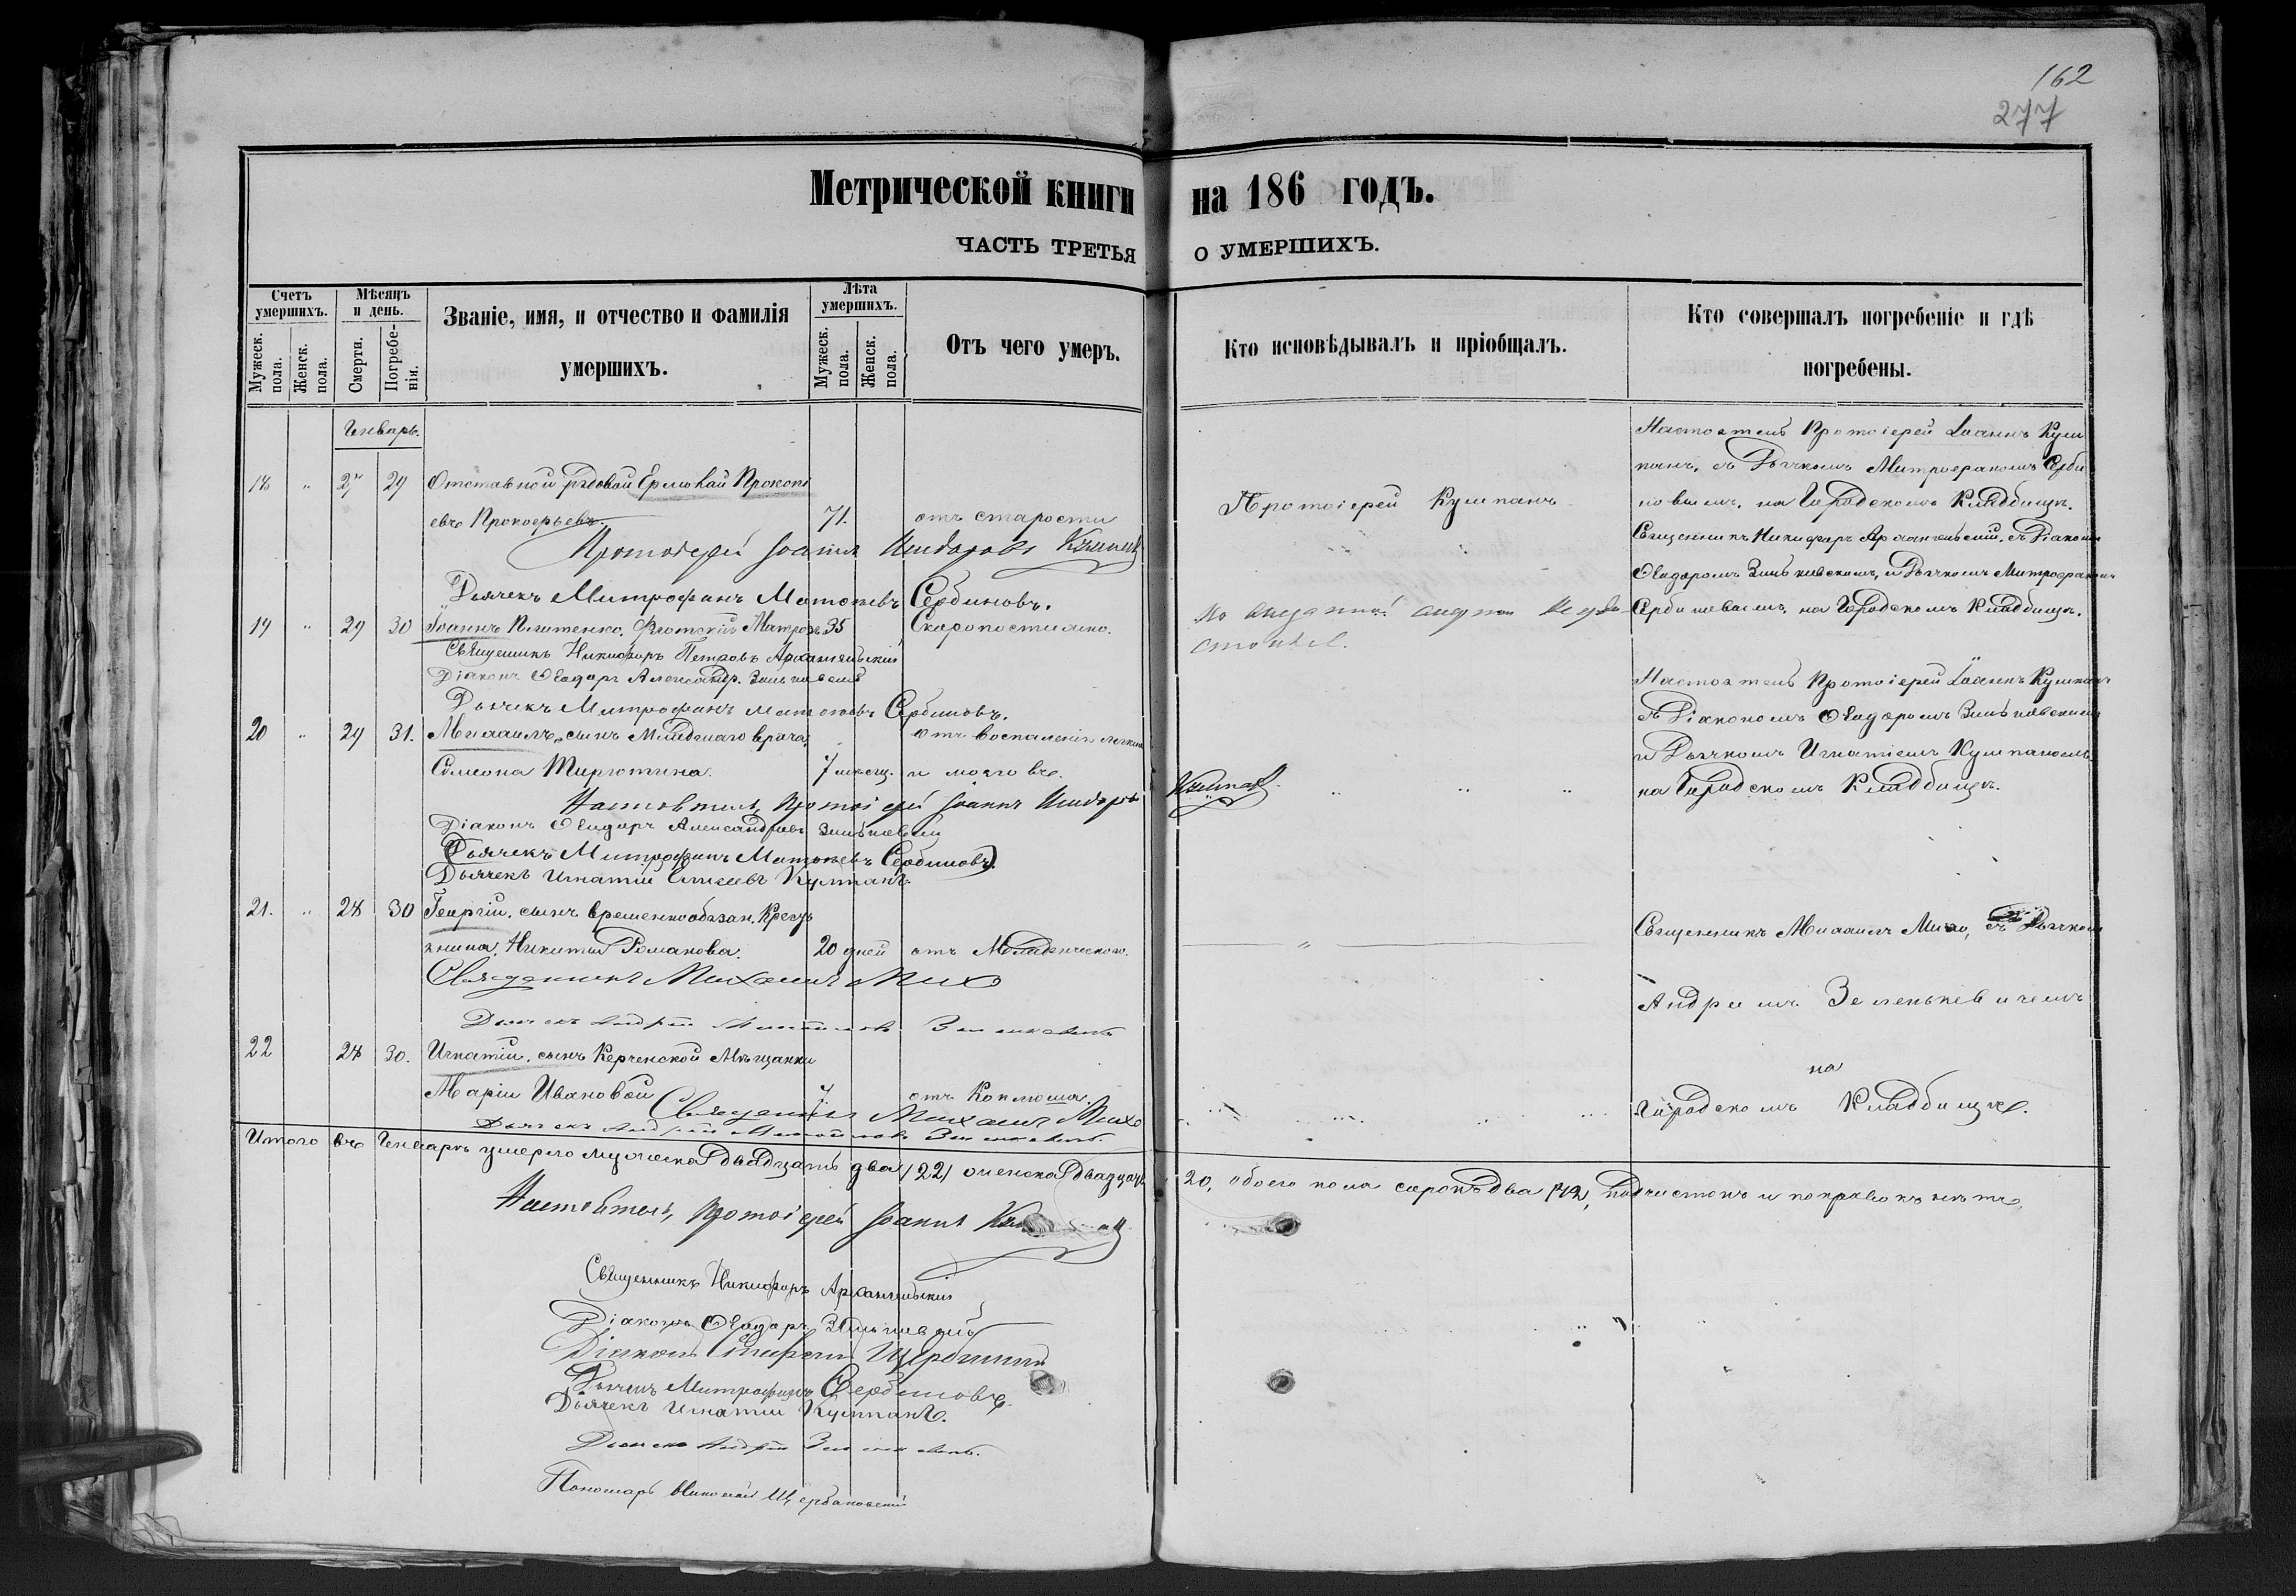 162
277
Метрической книги на 186 годъ.
ЧАСТЬ ТРЕТЬЯ О УМЕРШИХЪ.
Счетъ умершихъ.
Мужеск. пола.
Женск. пола.
Мѣсяцъ и день.
Смерти.
Погребенія.
Званіе, имя, и отчество и фамилія умершихъ.
Лѣта умершихъ.
Мужеск. пола.
Женск. пола.
Отъ чего умеръ.
Кто исповѣдывалъ и пріобщалъ.
Кто совершалъ погребеніе и гдѣ погребены.
Генварь.
18 " 27 29 Отставной рядовой Ермолай Прокопі
евъ Прокофьевъ. 71. отъ старости
Протоіерей Кушпанъ
Настоятель Протоіерей Іоаннъ Куш
панъ, съ Дьячкомъ Митрофаномъ Серби
новымъ, на Городскомъ Кладбищѣ.
Протоіерей Іоаннъ
Дьячекъ Митрофанъ Сербиновъ.
19 " 29 30 Іоаннъ Флотскій Матросъ 35 Скоропостижно.
По внезапной смерти не удо
стоился.
Священникъ Никифоръ Архангельскій, съ Діакономъ
Ѳеодоромъ Зиньковскимъ, и Дьячкомъ Митрофаномъ
Сербиновымъ, на Городскомъ Кладбищѣ.
Священникъ Никифоръ Петровъ Архангельскій
Діаконъ Ѳеодоръ Александр. Зиньковскій
Дьячекъ Митрофанъ Сербиновъ.
20 " 29 31. Михаилъ, сынъ Младшаго врача,
Симеона Тирютина. 7 мѣсяц. Отъ воспаленія легкихъ
и мозговъ.
Настоятель Протоіерей Іоаннъ Кушпанъ
съ Діакономъ Ѳеодоромъ Зиньковскимъ
и Дьячкомъ Игнатіемъ Кушпаномъ
на Городскомъ Кладбищѣ.
Настоятель, Протоіерей Іоаннъ
Кушпанъ
Діаконъ Ѳеодоръ Александровъ Зиньковскій
(Дьячекъ Митрофанъ Сербиновъ).
Дьячекъ Игнатій Елисеевъ Кушпанъ.
21. " 28 30 Георгій, сынъ временнообязан. Кресть
янина, Никиты Романова. 20 дней отъ Младенческаго.
"
Священникъ Михаилъ Михо, съ Дьячкомъ
Андреемъ Зеленкевичемъ
Священникъ Михаилъ Михо
Дьячекъ Андрей
22 28 30. Игнатій, сынъ Керченской Мѣщанки
Маріи Ивановой отъ Коклюша.
на
Городскомъ Кладбищѣ.
Священникъ Михаилъ Михо
Дьячекъ Андрей
Итого въ Генварѣ умерло мужеска двадцать два (22) женска двадцать 20, обоего пола сорокъ два (42), подчистокъ и поправокъ нѣтъ.
Настоятель, Протоіерей Іоаннъ
Священникъ Никифоръ Архангельскій
Діаконъ Ѳеодоръ Зиньковскій
Діаконъ
Дьячекъ Митрофанъ Сербиновъ.
Дьячекъ Игнатій Кушпанъ.
Дьячекъ Андрей
Пономарь Николай Щербаковскій